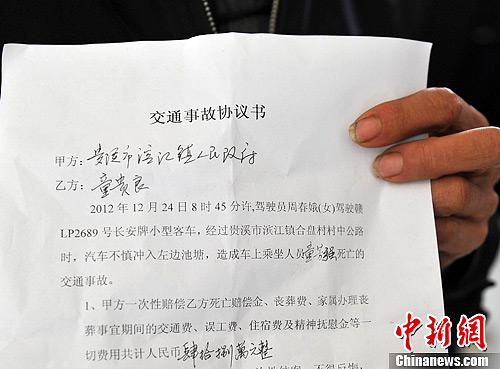 交通事故协议书
甲方：贵溪市滨江镇人民政府
乙方：童贵良
2012 年 12 月 24 日 8 时 45 分许,驾驶员周春娥(女)驾驶赣
LP2689 号长安牌小型客车，经过贵溪市滨江镇合盘村村中公路
时，汽车不慎冲入左边池塘，造成车上乘坐人员童 强死亡的
交通事故。
1、甲方一次性赔偿乙方死亡赔偿金、丧葬费、家属办理丧
葬事宜期间的交通费、误工费、住宿费及精神抚慰金等一
切费用共计人民币肆拾捌萬元整
不得反悔
中新网
Chinanews.com